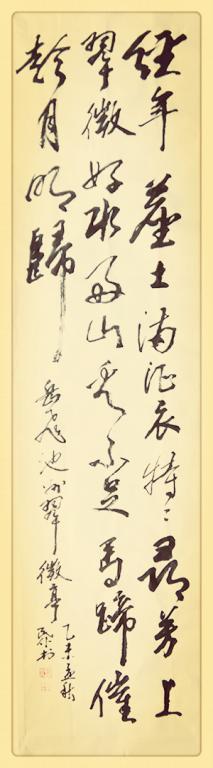 經年塵土滿征衣特〻尋芳上
翠微好水好山看不足馬蹄催
趁月明歸
岳飛池州翠微亭
乙未孟秋